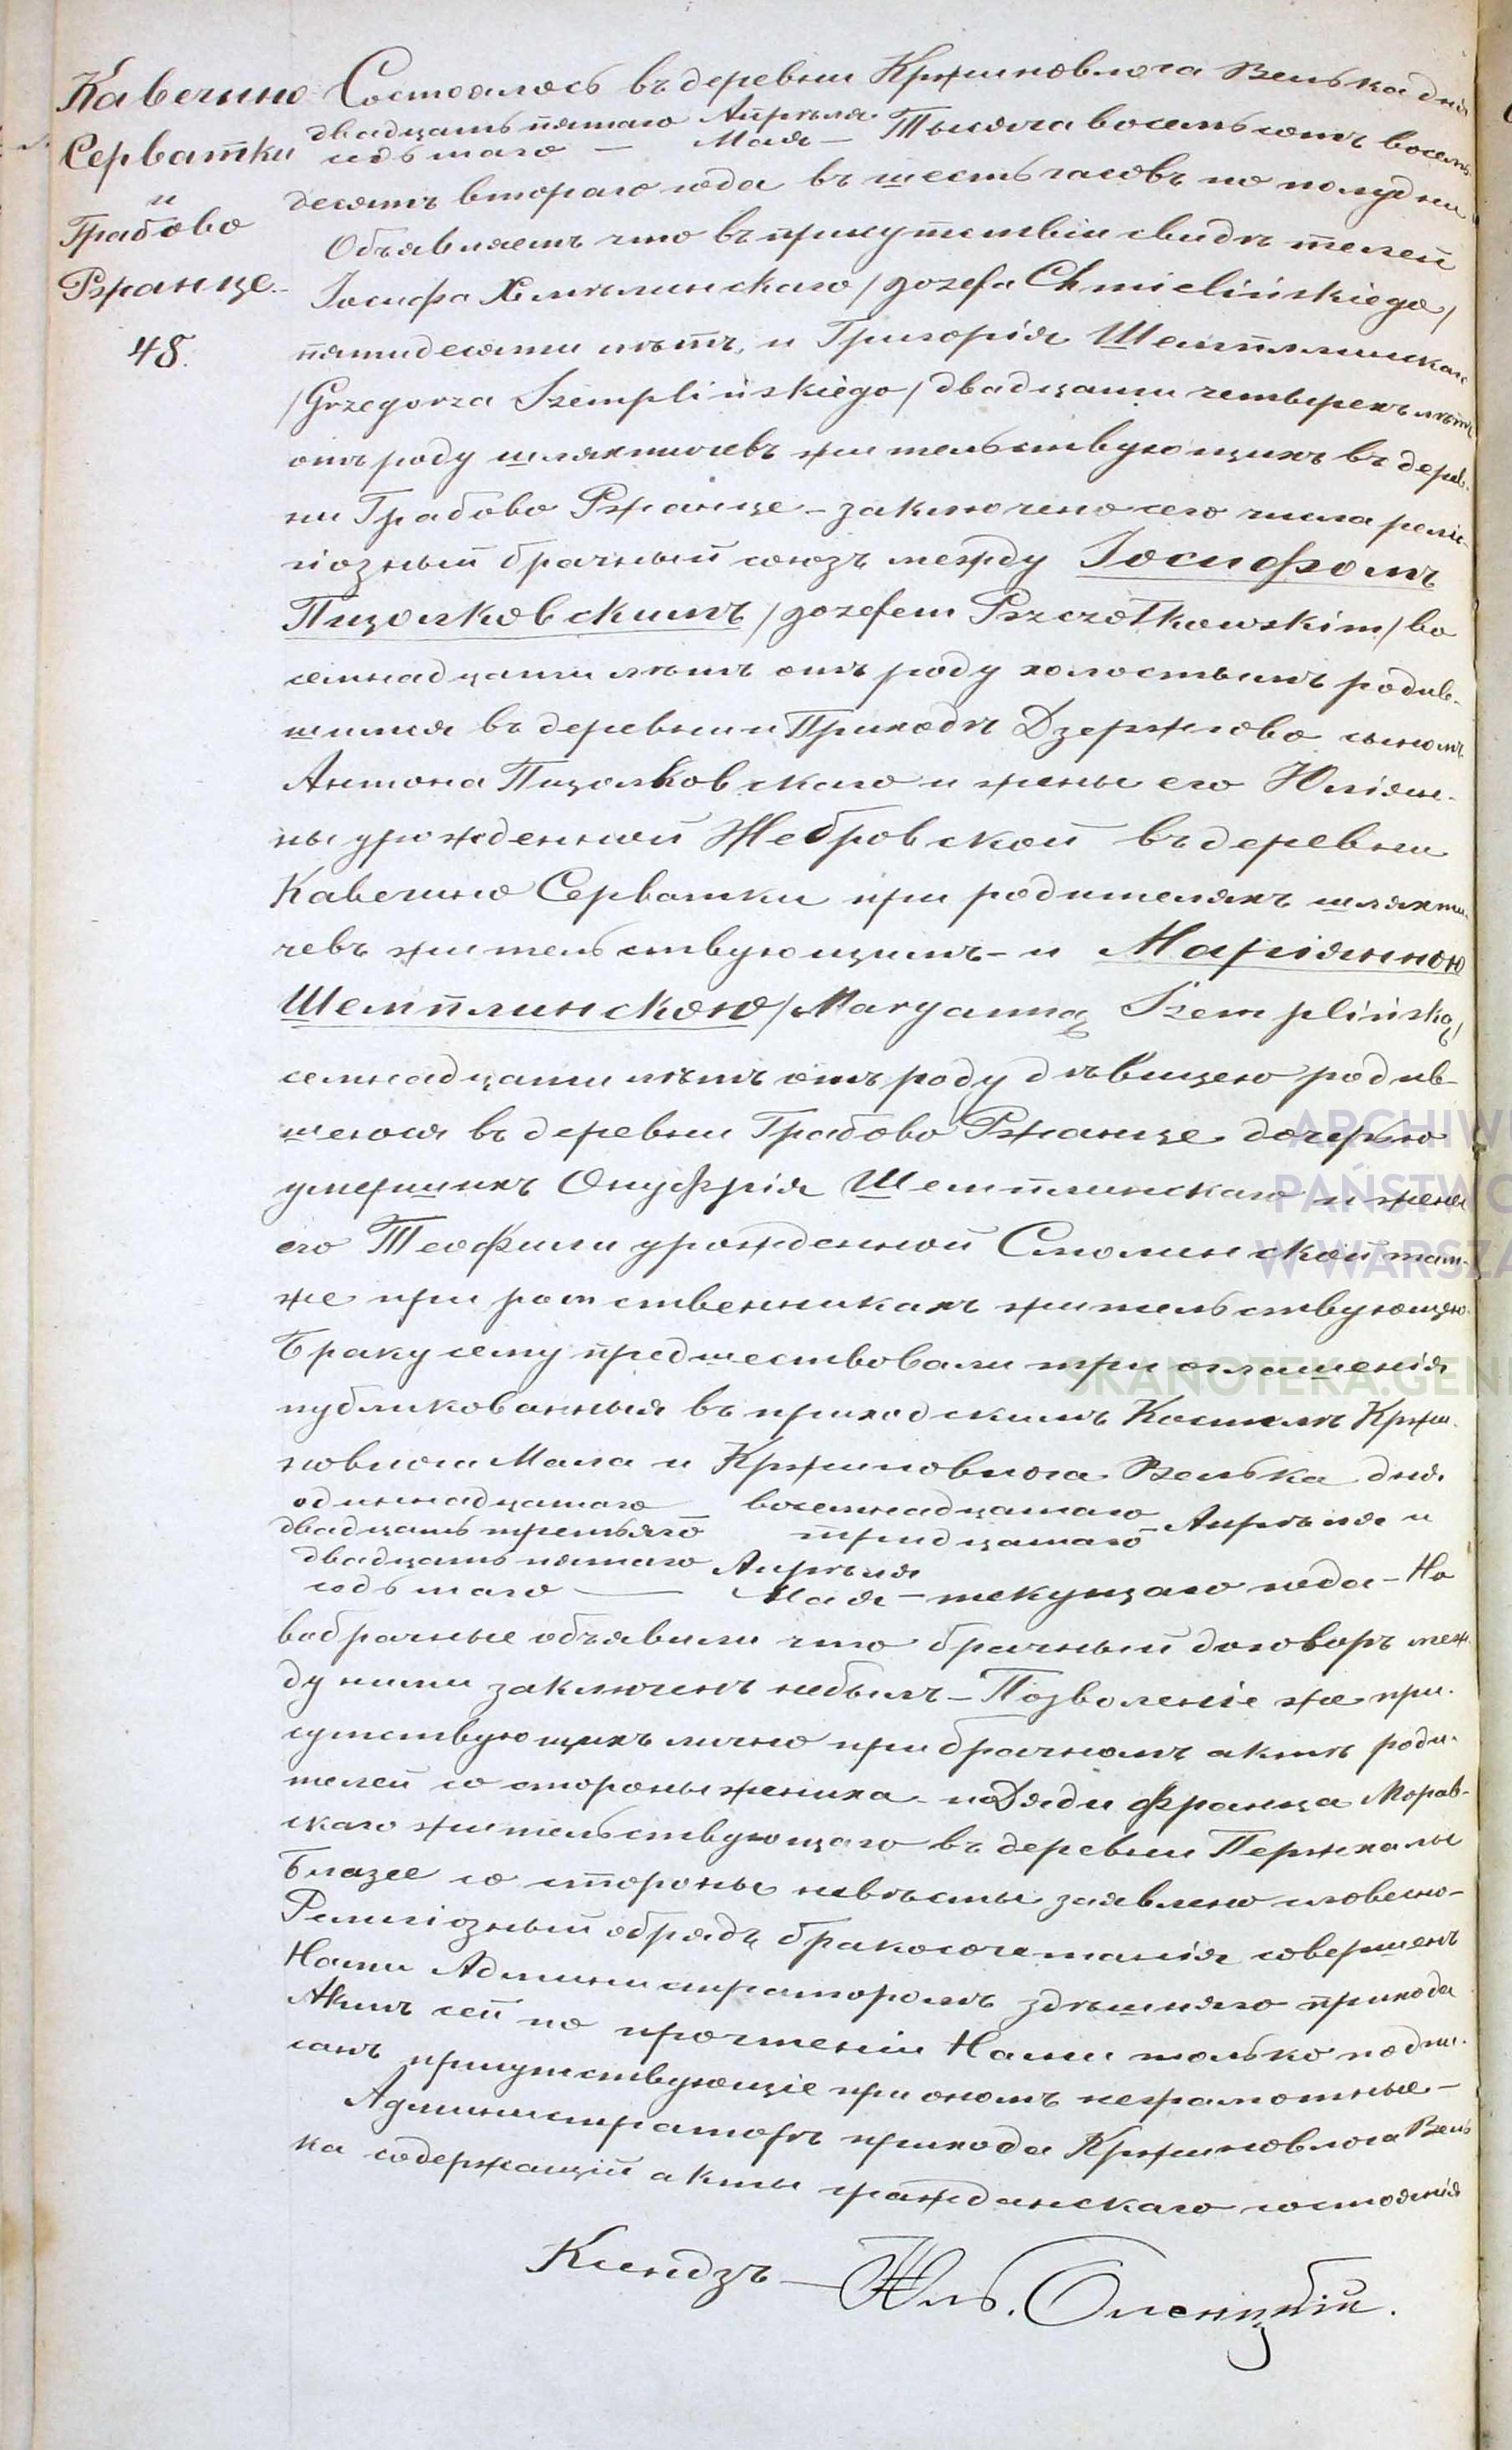 Кавечино
Серватки
и
Грабово
Ржанце.
48.
Состоялось въ деревни Кржиновлога Велька дня
двадцать пятаго Апрѣля
седьмаго — Мая — Тысяча восемьсотъ восемь-
десятъ втораго года въ шесть часовъ по полудни
Объявляемъ что въ присутствіи свидѣтелей
Іосифа Хмѣлинскаго /Jozefa Chmielińskiego/
пятидесяти лѣтъ, и Григорія Шемплинскаго
/Grzegorza Szemplińskiego/ двадцати четырехъ лѣтъ
отъ роду шляхтичевъ жительствующихъ въ дерев-
ни Грабово Ржанце – заключено сего числа рели-
гіозный брачный союзъ между Іосифомъ
Пщолковскимъ /Jozefem Pszczołkowskim/ во
семнадцати лѣтъ отъ роду холостымъ родив-
шимся въ деревни и Приходѣ Дзержгово сыномъ
Антона Пщолковскаго и жены его Юліян-
ны урожденной Жебровской въ деревни
Кавечино Серватки при родителяхъ шляхти-
чевъ жительствующимъ – и Маріянною
Шемплинскою /Maryanną Szemplińską/
семнадцати лѣтъ отъ роду дѣвицею родив-
шеюся въ деревни Грабово Ржанце дочерью
умершихъ Онуфрія Шемплинскаго и жены
его Теофили урожденной Смолинской там-
же при родственникахъ жительствующею.
Браку сему предшествовали три оглашенія
публикованныя въ приходскимъ Костелѣ Кржи-
новлога Мала и Кржиновлога Велька дня
одиннадцатаго восемнадцатаго
двадцать третьяго тридцатаго Апрѣля и
двадцать пятаго Апрѣля
седьмаго — Мая – текущаго года – Но
вобрачные объявили что брачный договоръ меж-
ду ними заключенъ небылъ – Позволеніе же при-
сутствующихъ лично при брачномъ актѣ роди-
телей со стороны жениха – и Дяди Франца Морав-
скаго жительствующаго въ деревни Пержхалы
Блазее со стороны невѣсты заявлено словесно –
Религіозный обрядъ бракосочетанія совершенъ
Нами Администраторомъ здѣшняго прихода
Актъ сей по прочтеніи Нами только подпи-
санъ присутствующіе при ономъ неграмотные –
Администраторъ прихода Кржиновлога Вель
ка содержащій акты гражданскаго состоянія
Ксендзъ — Юль.